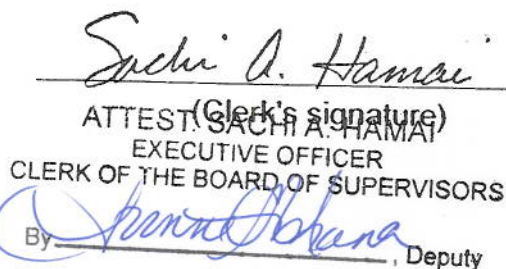 Sachi A. Hamai
(Clerk's signature)
ATTEST: SACHI A. HAMAI
EXECUTIVE OFFICER
CLERK OF THE BOARD OF SUPERVISORS
By , Deputy